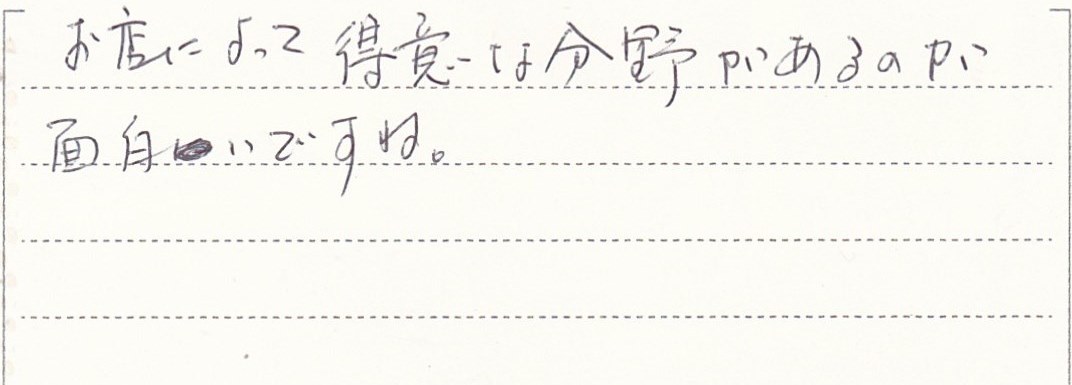 お店によって得意な分野があるのが
面白いですね。